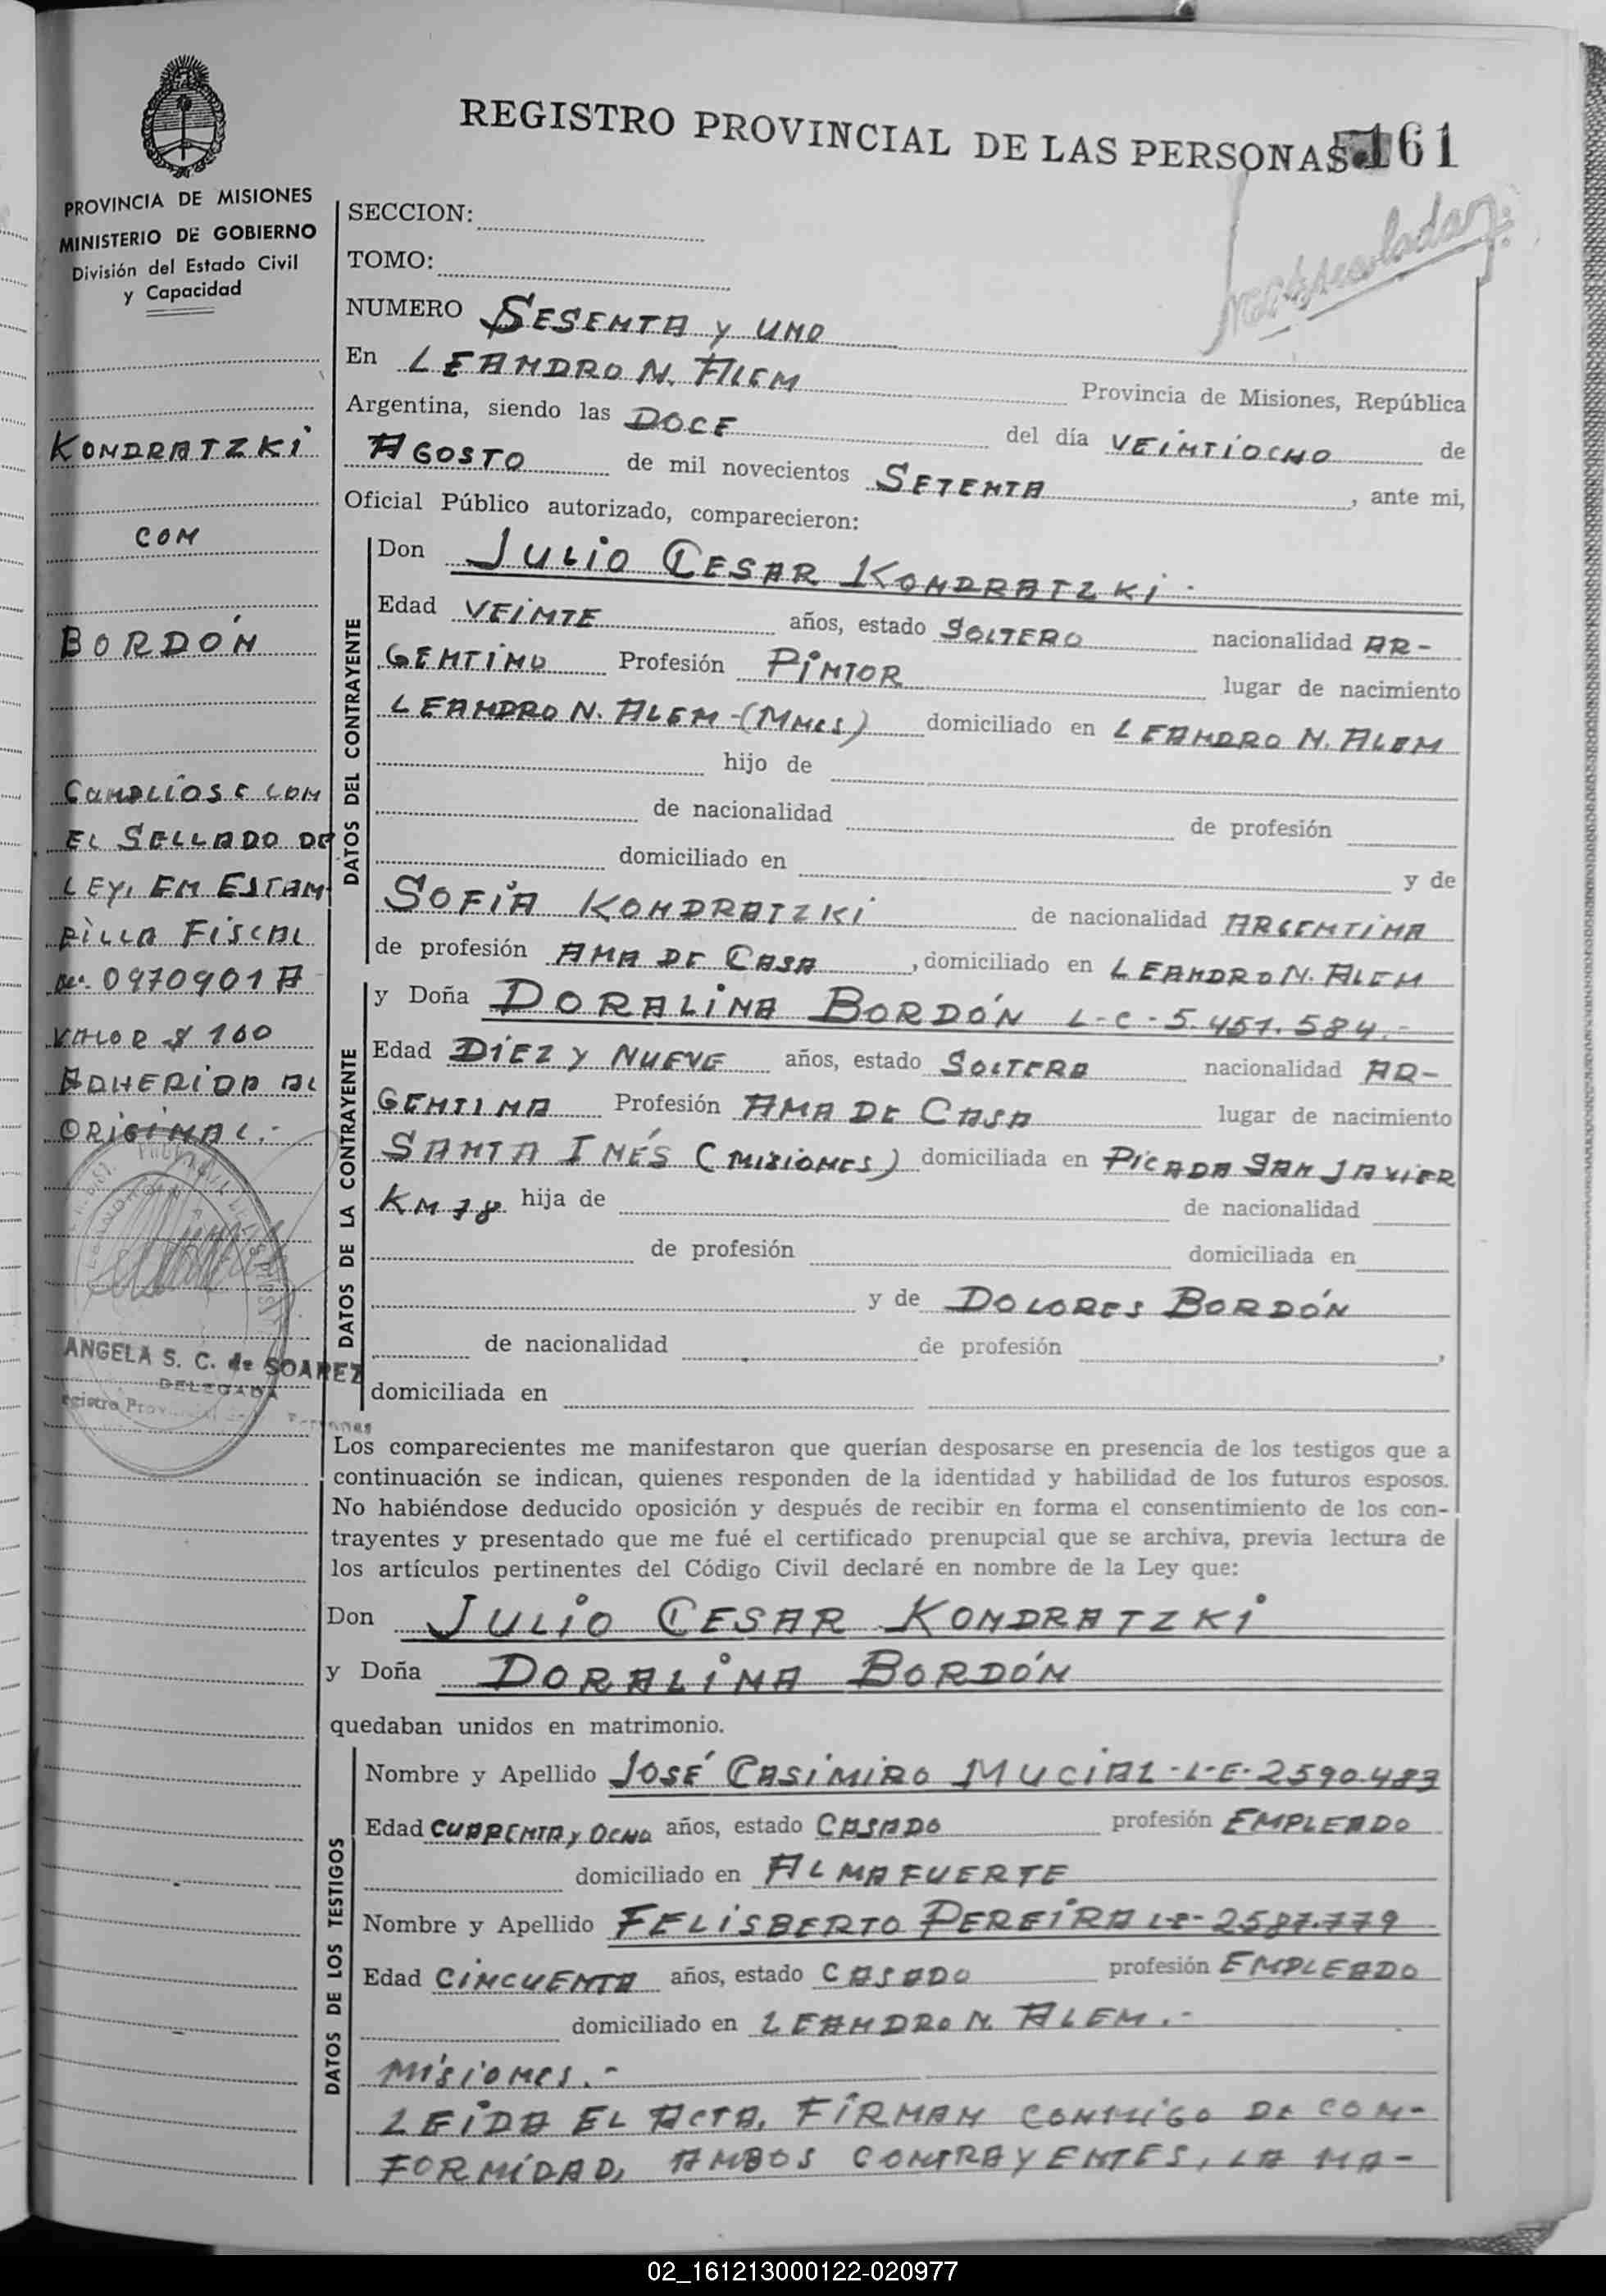 REGISTRO PROVINCIAL DE LAS PERSONAS 161
PROVINCIA DE MISIONES
MINISTERIO DE GOBIERNO
División del Estado Civil
y Capacidad
KONDRATZKI
CON
BORDÓN
CUMPLIOSE CON
EL SELLADO DE
LEY, EN ESTAM
PILLA FISCAL
Nº 0970901 A
VALOR $ 100
ADHERIDA AL
ORIGINAL.-
ANGELA S. C. de SOAREZ
DELEGADA
SECCION:
TOMO:
NUMERO SESENTA y UNO
En LEANDRO N. ALEM Provincia de Misiones, República
Argentina, siendo las DOCE del día VEINTIOCHO de
AGOSTO de mil novecientos SETENTA, ante mi,
Oficial Público autorizado, comparecieron:
DATOS DEL CONTRAYENTE
Don JULIO CESAR KONDRATZKI.
Edad VEINTE años, estado SOLTERO nacionalidad AR-
GENTINO Profesión PINTOR lugar de nacimiento
LEANDRO N. ALEM-(Mnes) domiciliado en LEANDRO N. ALEM
hijo de
de nacionalidad de profesión
domiciliado en y de
SOFIA KONDRATZKI de nacionalidad ARGENTINA
de profesión AMA DE CASA, domiciliado en LEANDRO N. ALEM
DATOS DE LA CONTRAYENTE
y Doña DORALINA BORDÓN L-C-5.451.584.-
Edad DIEZ y NUEVE años, estado SOLTERA nacionalidad AR-
GENTINA Profesión AMA DE CASA lugar de nacimiento
SANTA INÉS (MISIONES) domiciliada en PICADA SAN JAVIER
KM 78 hija de de nacionalidad
de profesión domiciliada en
y de DOLORES BORDÓN
de nacionalidad de profesión ,
domiciliada en
Los comparecientes me manifestaron que querían desposarse en presencia de los testigos que a
continuación se indican, quienes responden de la identidad y habilidad de los futuros esposos.
No habiéndose deducido oposición y después de recibir en forma el consentimiento de los con-
trayentes y presentado que me fué el certificado prenupcial que se archiva, previa lectura de
los artículos pertinentes del Código Civil declaré en nombre de la Ley que:
Don JULIO CESAR KONDRATZKI
y Doña DORALINA BORDÓN
quedaban unidos en matrimonio.
DATOS DE LOS TESTIGOS
Nombre y Apellido JOSÉ CASIMIRO MUCIAL-L-E-2590.483
Edad CUARENTA y OCHO años, estado CASADO profesión EMPLEADO
domiciliado en ALMAFUERTE
Nombre y Apellido FELISBERTO PEREIRA L-E-2587.779
Edad CINCUENTA años, estado CASADO profesión EMPLEADO
domiciliado en LEANDRO N. ALEM.-
MISIONES.-
LEIDA EL ACTA, FIRMAN CONMIGO DE CON-
FORMIDAD, AMBOS CONTRAYENTES, LA MA-
02_161213000122-020977